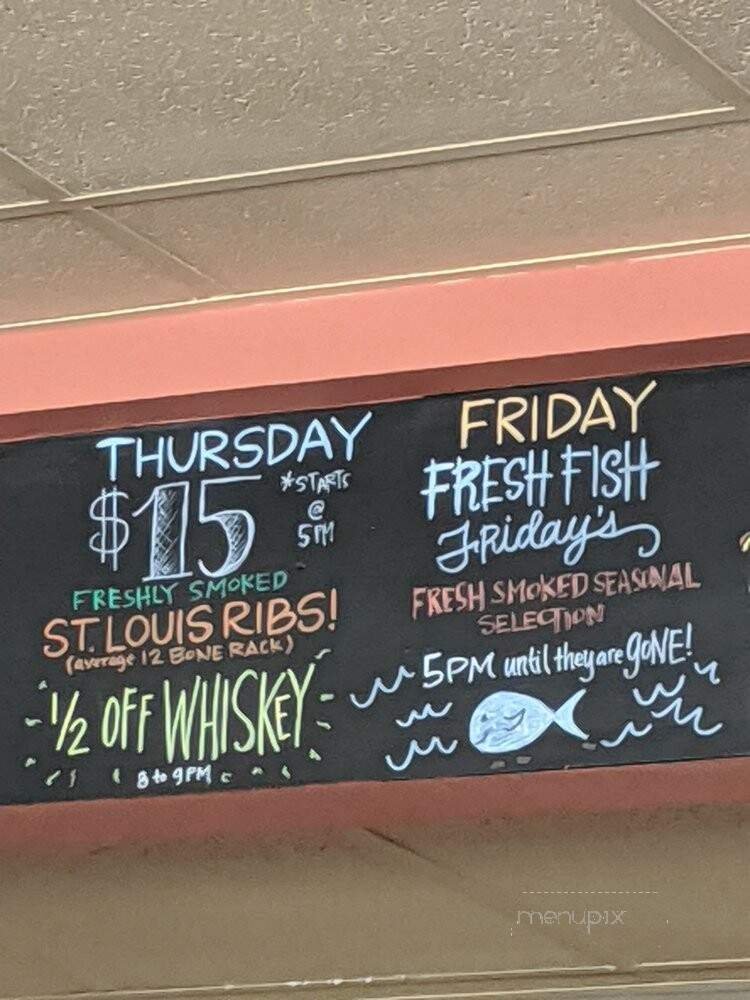 THURSDAY
$15
*STARTS
@
5PM
FRESHLY SMOKED
ST. LOUIS RIBS!
(average 12 BONE RACK)
1/2 OFF WHISKEY
8 to 9PM
FRIDAY
FRESH FISH
FRiday's
FRESH SMOKED SEASONAL
SELECTION
5PM until they are gONE!
menupix